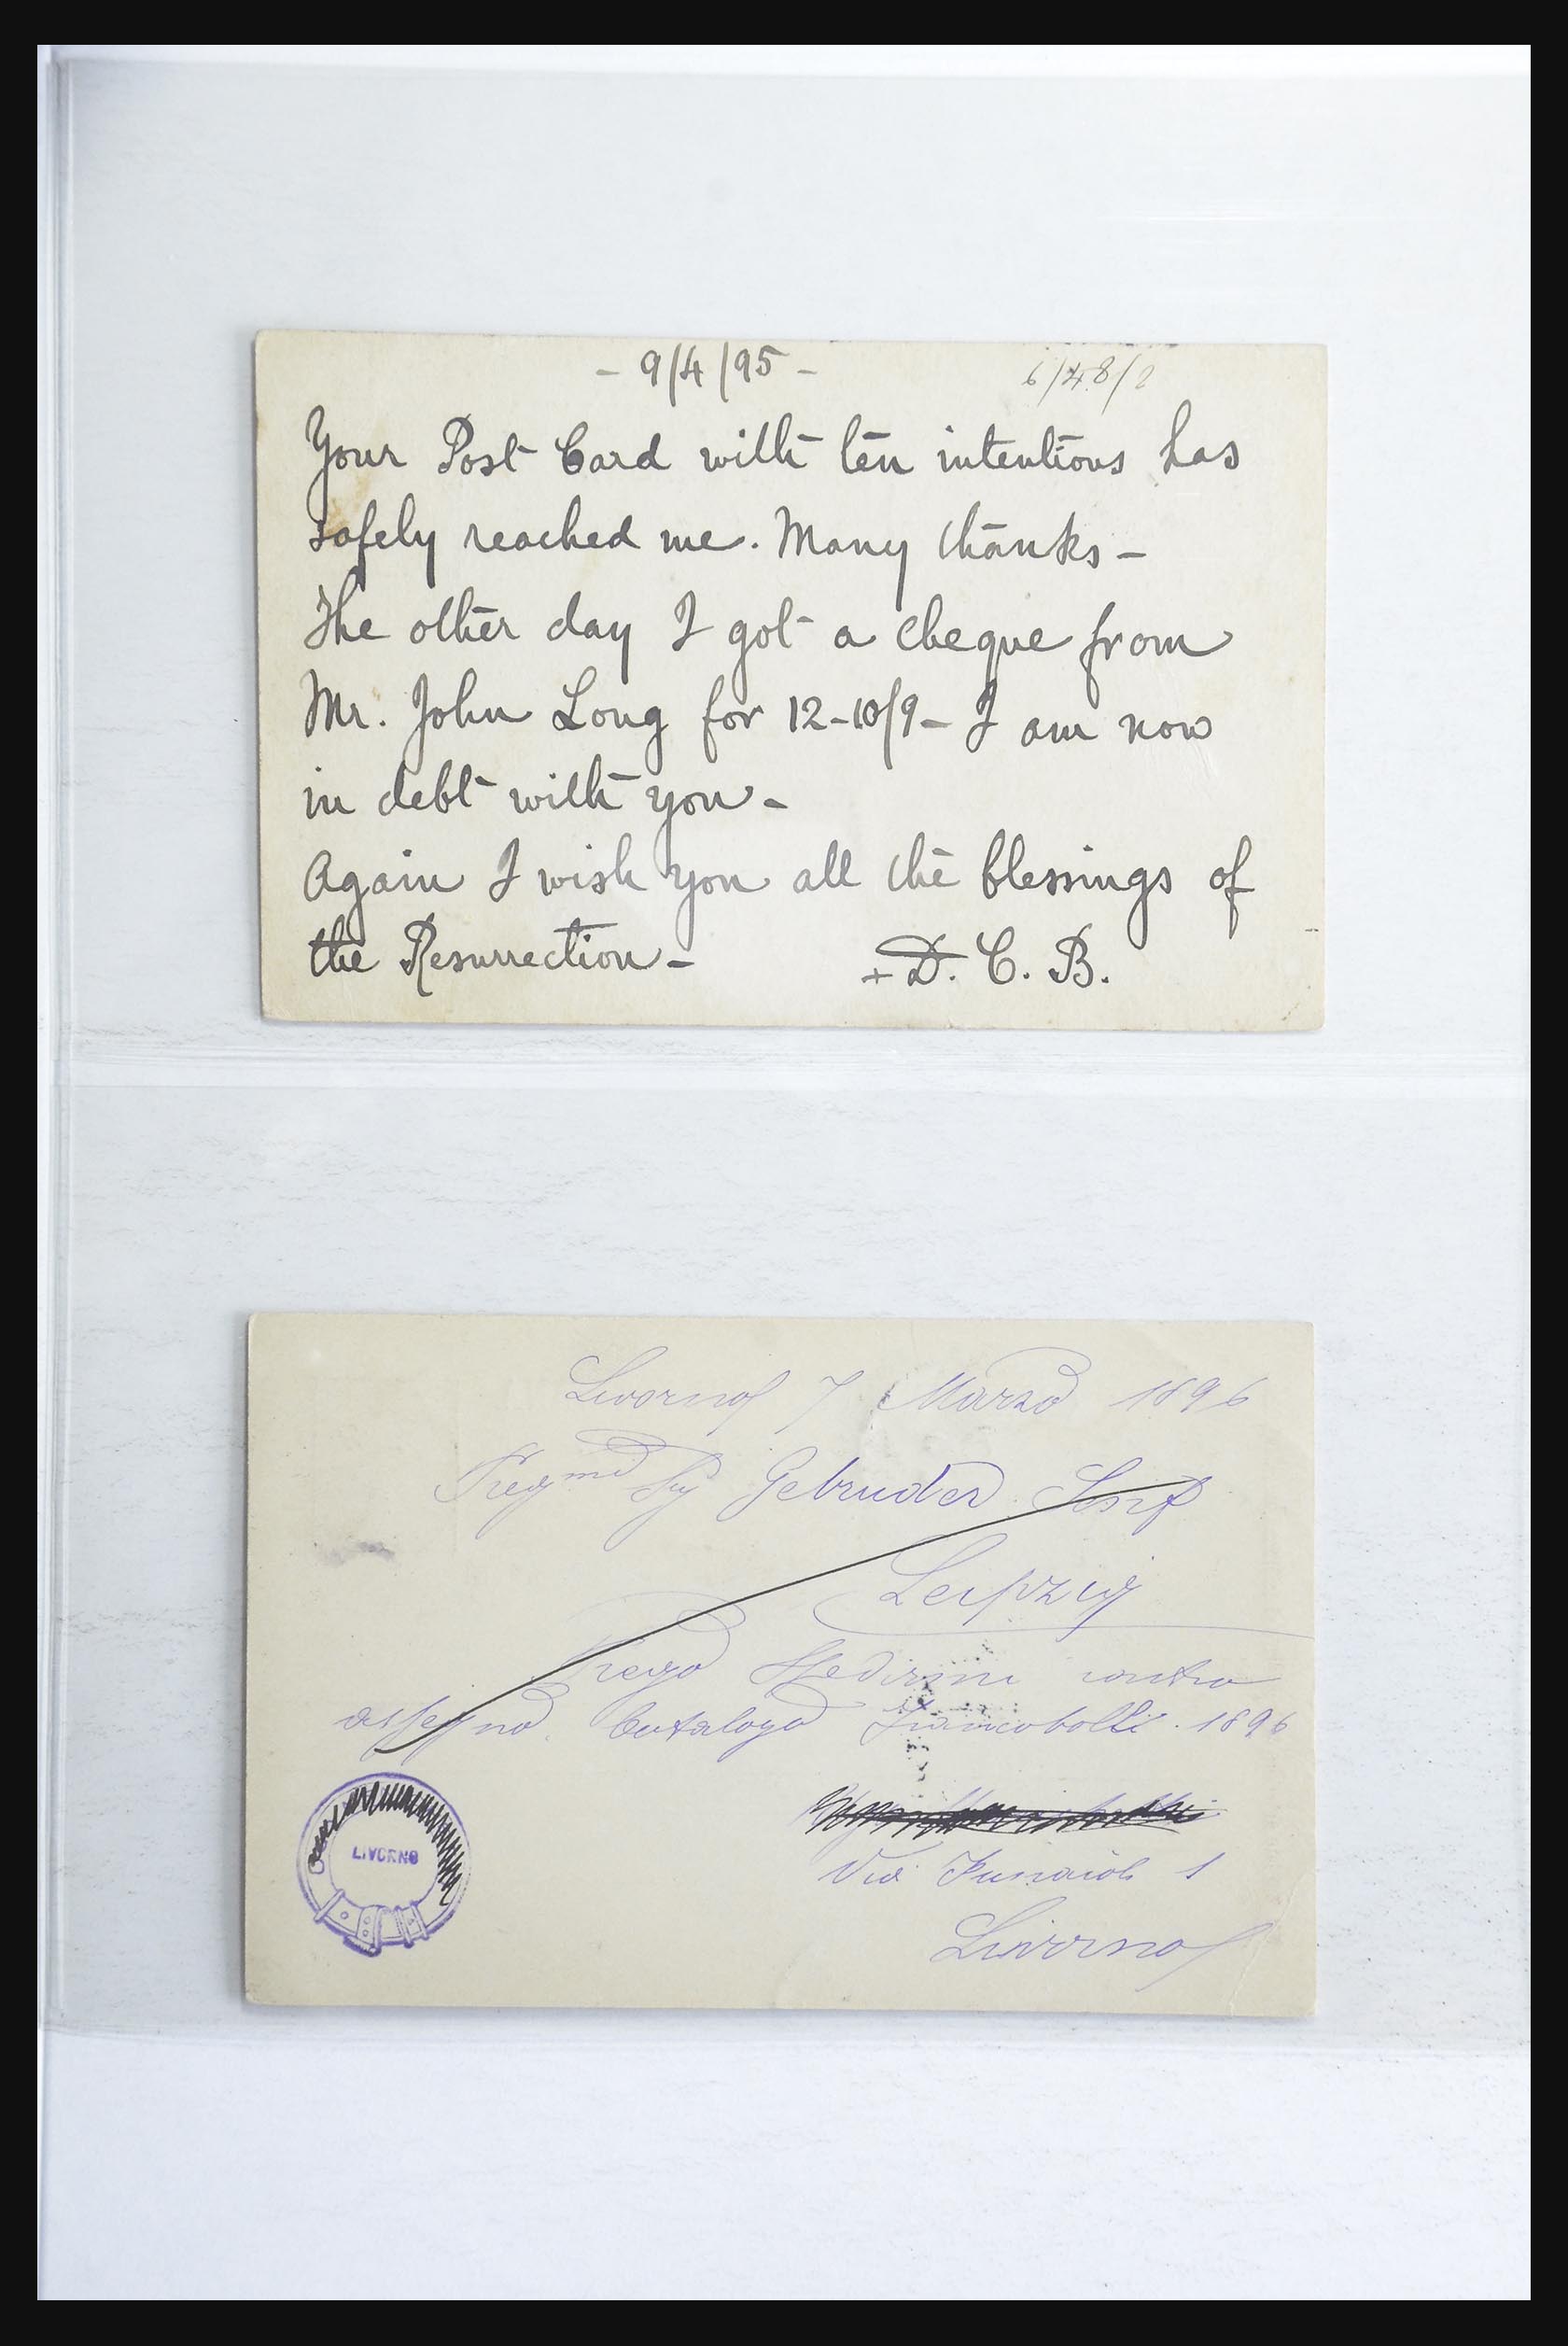 - 9/4/95 -
Your Post Card with ten intentions has
safely reached me. Many thanks -
The other day I got a cheque from
Mr. John Long for 12-10/9 - I am now
in debt with you -
Again I wish you all the blessings of
the Resurrection - + D. C. B.
Livorno 7 Marzo 1896
Gebruder Senf
Leipzig
Prego spedirmi contro
assegno Catalogo Francobolli. 1896
LIVORNO
Via 1
Livorno